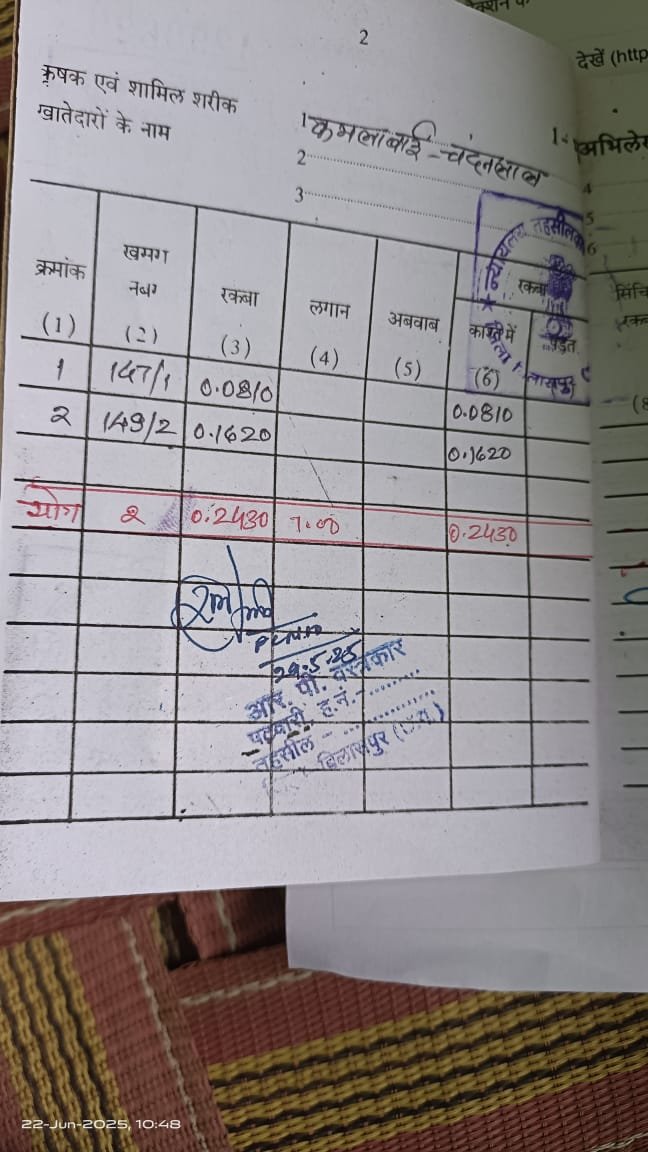 2
देखें (http
कृषक एवं शामिल शरीक
खातेदारों के नाम
1 कमलाबाई - चंदनलाल
2
3
1-
अभिलेख
4
5
6
न्यायालय तहसीलदार
क्रमांक
खमग
नबग
रकबा
लगान
अबवाब
रकबा
काश्त में
पड़त
(1)
(2)
(3)
(4)
(5)
(6)
सिंचि
रकब
(8
1 147/1 0.0810 0.0810
2 149/2 0.1620 0.1620
योग 2 0.2430 7.00 0.2430
29.5.25
आर. पी. वस्त्रकार
पटवारी, ह.नं.-
तहसील -
बिलासपुर
22-Jun-2025, 10:48